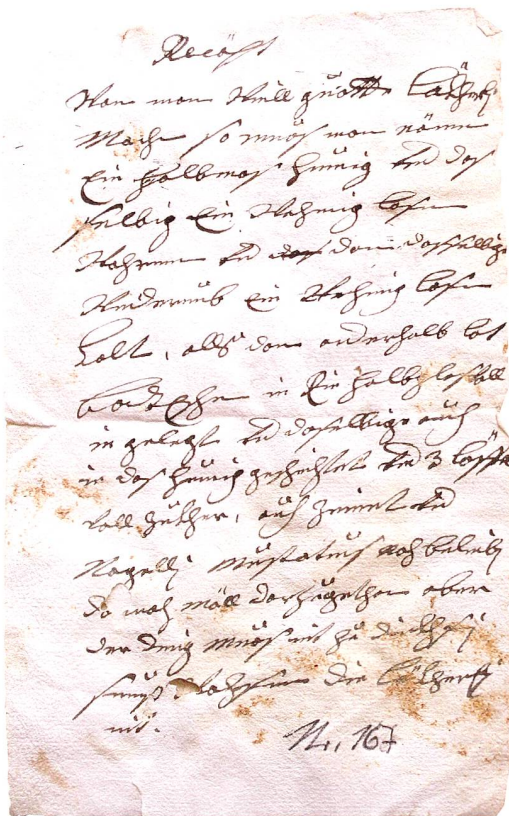 Recäpt
Wan man Will guotte läckerlj
Mach so muos man nämen
Ein halbmas hunig und das
selbig Ein Wehnig lasen
Wahrmen und dan dasselbige
Widerumb Ein Wehnig lasen
kalt, alls dan anderhalb lot
in Ein halb glas voll
in gelegt und daselbige auch
in das hunig geschichtet und 3 löffel
voll zuther, auch Zimet und
Nagellj Muscatnus nach belieben
da nach mäll darzu gethan aber
der deig muos nit zu dick sej
sunst Wachsen die läckerlj
nit.
Nr. 167